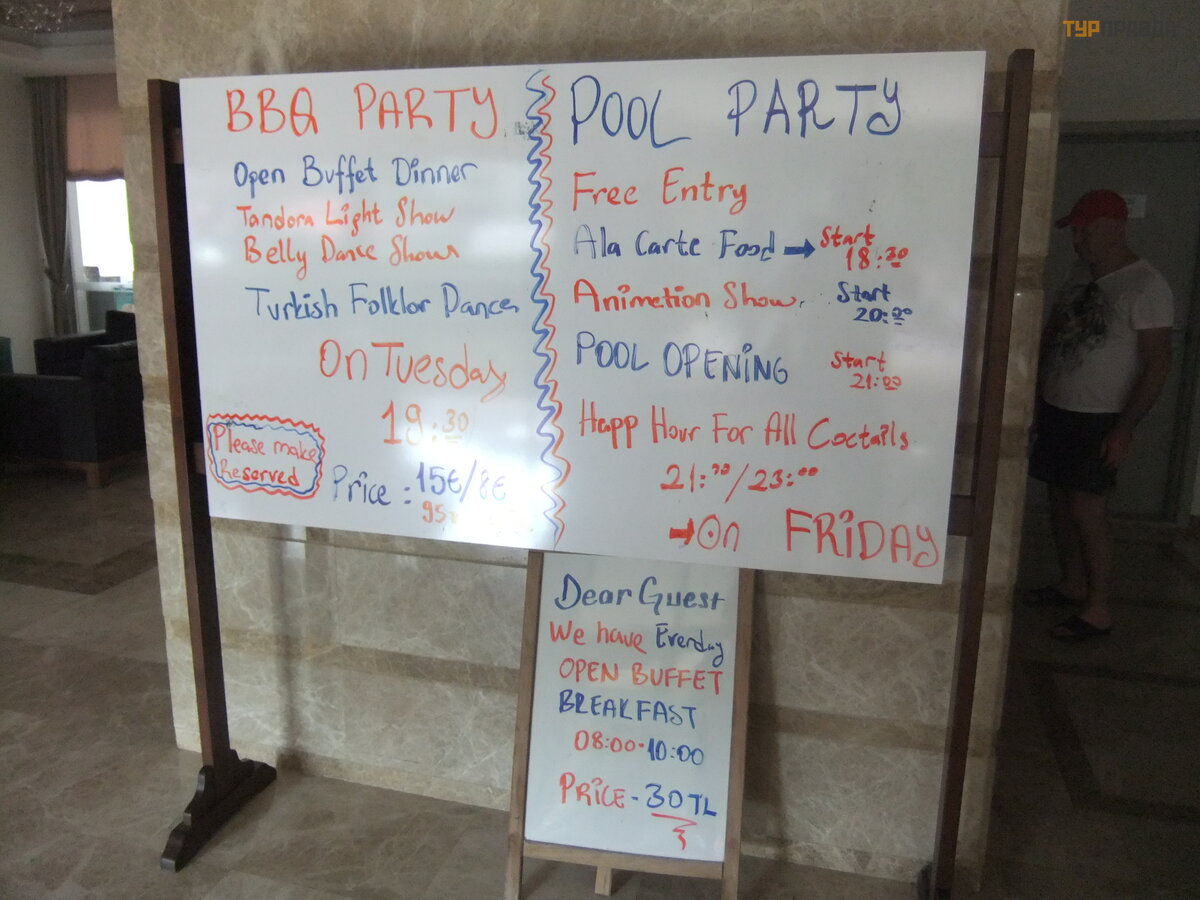 BBQ PARTY
Open Buffet Dinner
Tandora Light Show
Belly Dance Show
Turkish Folklor Dances
On Tuesday
19:30
Please make
Reserved
Price: 15€/8€
POOL PARTY
Free Entry
Ala Carte Food → Start
18:30
Animetion Show. Start
20:00
POOL OPENING Start
21:00
Happ Hour For All Coctails
21:00/23:00
→ On FRIDAY
Dear Guest
We have Everday
OPEN BUFFET
BREAKFAST
08:00-10:00
PRICE - 30 TL
ТУРПРАВДА